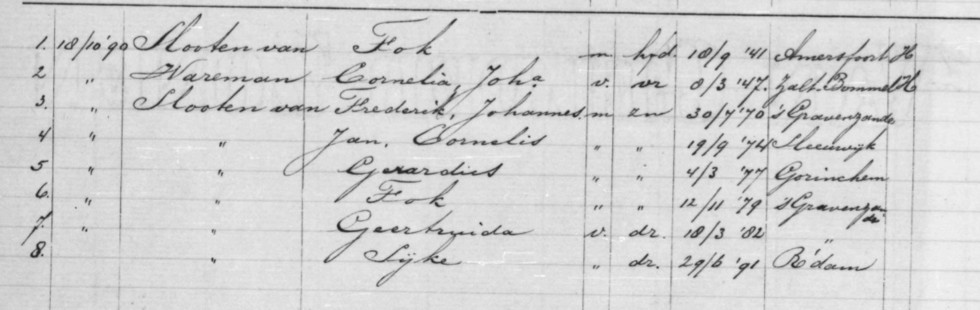 1. 18/10 '90 Slooten van Fok m hfd. 18/9 '41 Amersfoort H
2 " Wareman Cornelia, Joha v. vr 8/3 '47. Zalt-Bommel H
3. " Slooten van Frederik, Johannes. m zn 30/7 '70 's Gravenzande
4 " " Jan, Cornelis " " 19/9 '74 Sleeuwijk
5 " " Gerardus " " 4/3 '77 Gorinchem
6. " " Fok " " 12/11 '79 's Gravenzande
7. " " Geertruida v. dr. 18/3 '82 "
8. " Sijke " dr. 29/6 '91 R'dam